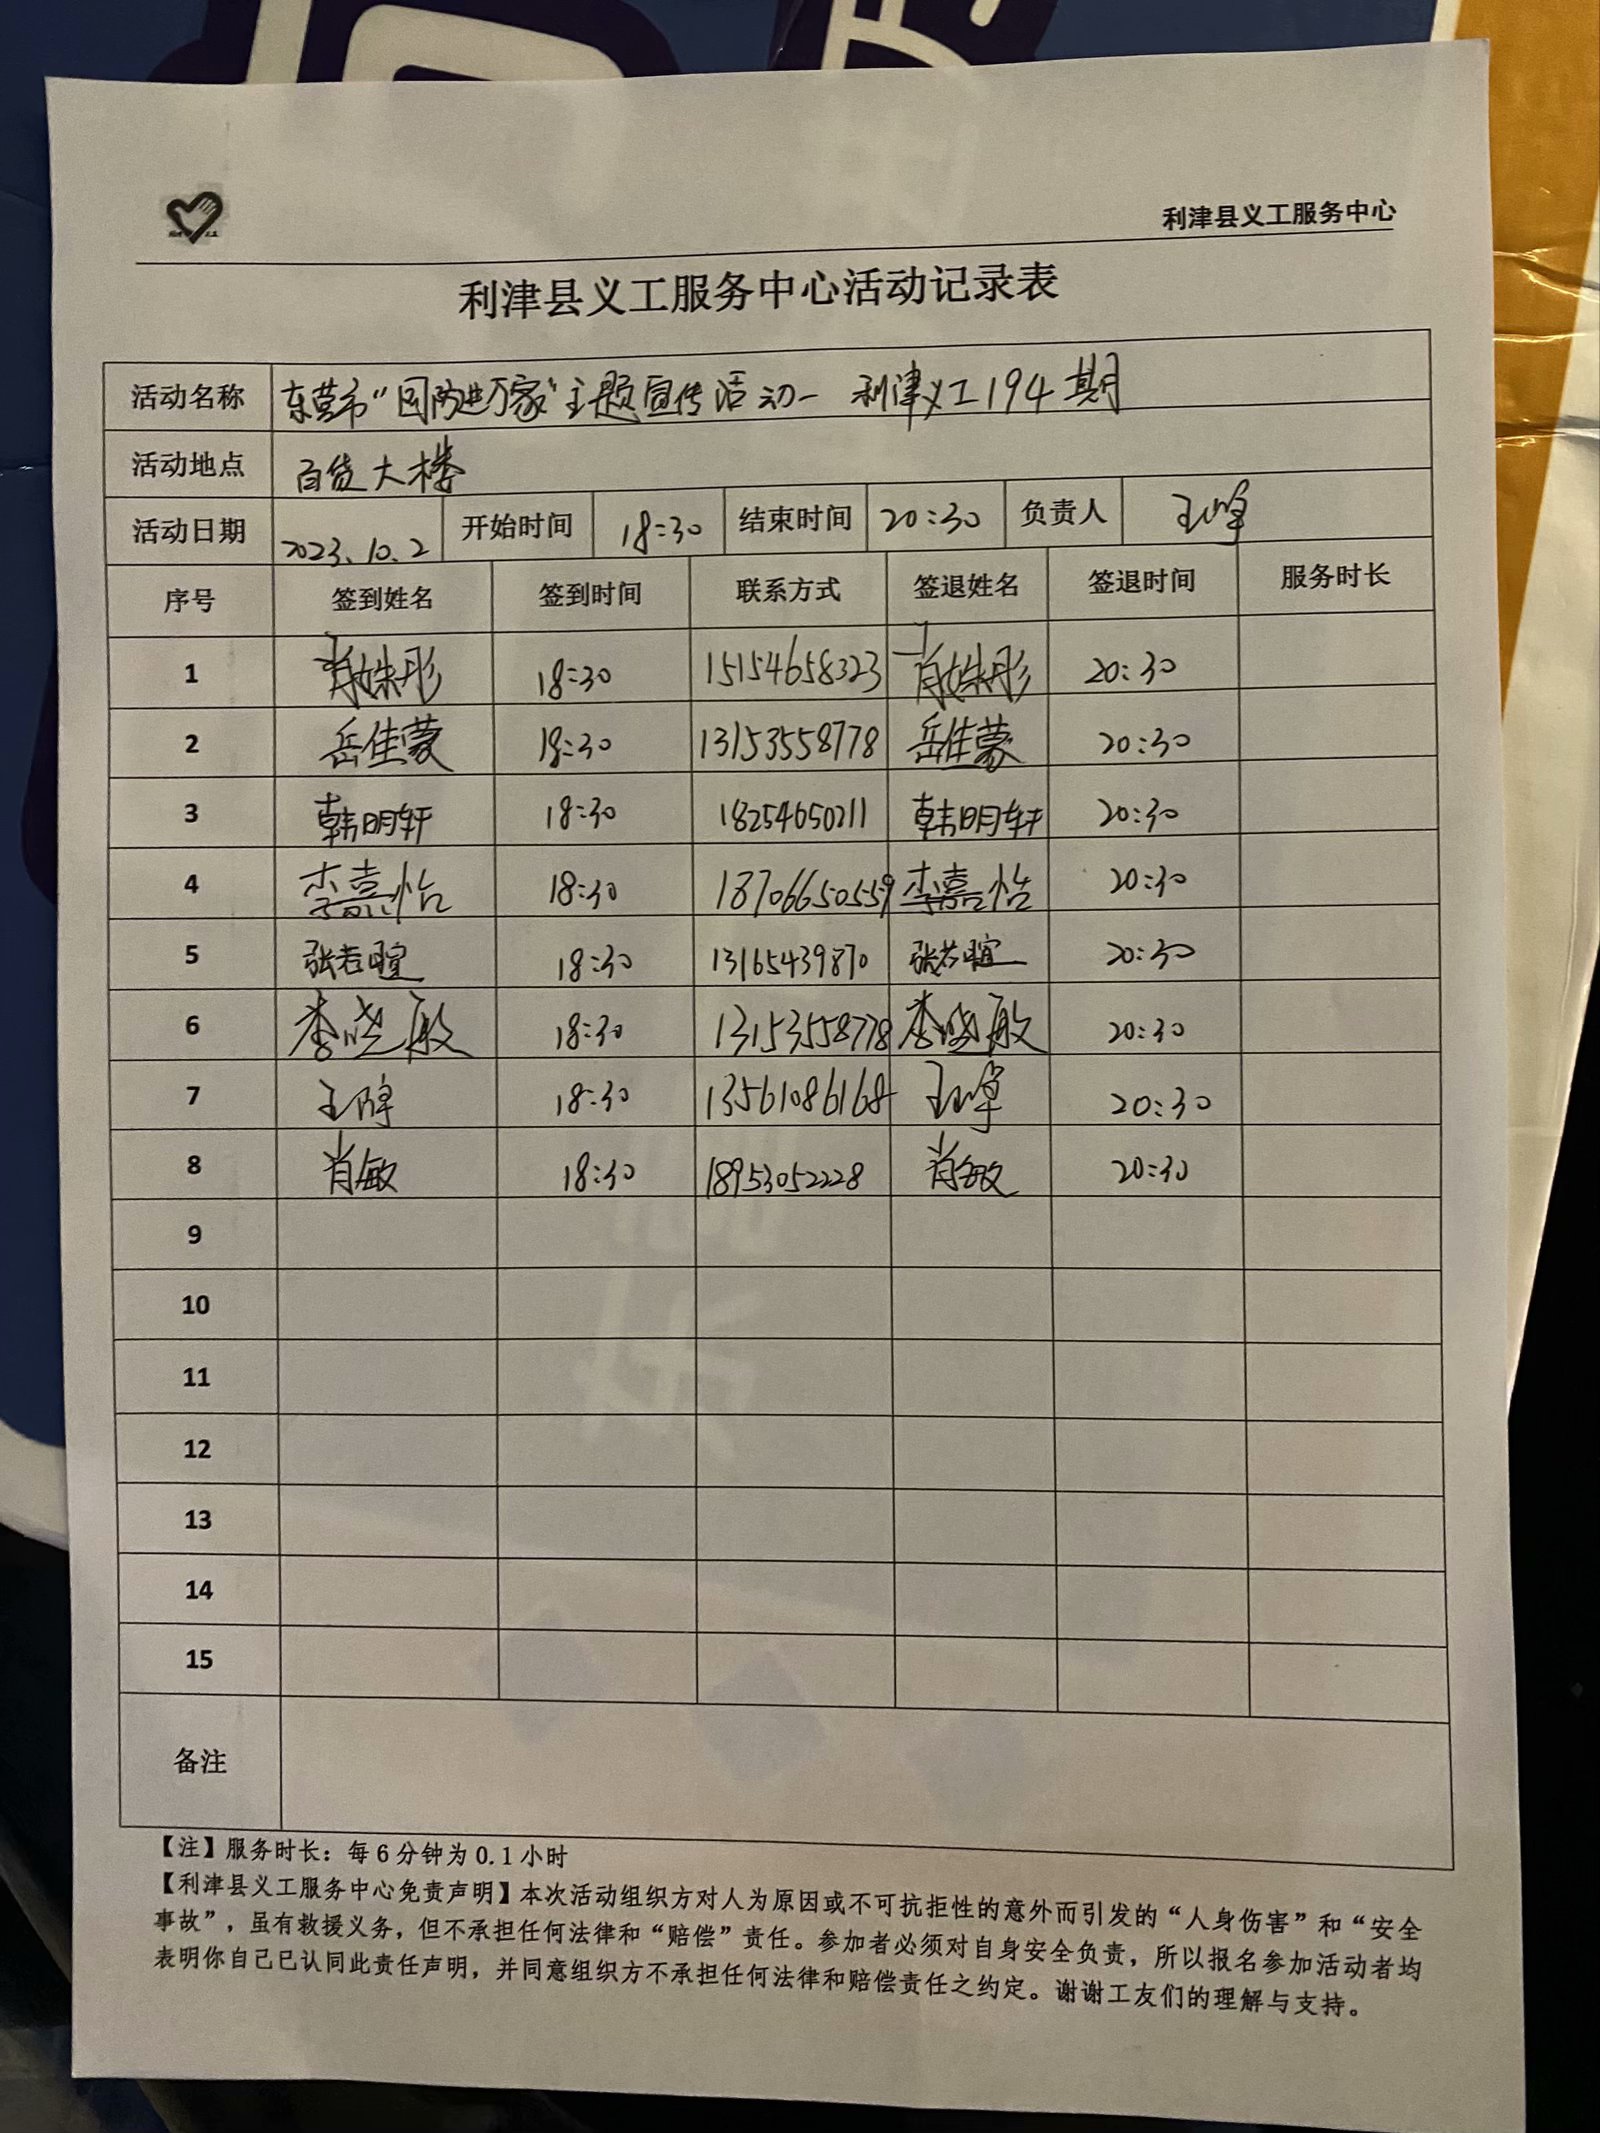 利津县义工服务中心
利津县义工服务中心活动记录表
活动名称 东营市“国防进万家”主题宣传活动— 利津义工194期
活动地点 百货大楼
活动日期 2023.10.2 开始时间 18:30 结束时间 20:30 负责人 王
序号 签到姓名 签到时间 联系方式 签退姓名 签退时间 服务时长
1 肖姝彤 18:30 15154658323 肖姝彤 20:30
2 岳佳蒙 18:30 13153558778 岳佳蒙 20:30
3 韩明轩 18:30 18254650211 韩明轩 20:30
4 李嘉怡 18:30 18706650559 李嘉怡 20:30
5 张若暄 18:30 13165439870 张若暄 20:30
6 李晓敏 18:30 13153558778 李晓敏 20:30
7 王 18:30 13561086168 王 20:30
8 肖敏 18:30 18953052228 肖敏 20:30
9
10
11
12
13
14
15
备注
【注】服务时长：每6分钟为0.1小时
【利津县义工服务中心免责声明】本次活动组织方对人为原因或不可抗拒性的意外而引发的“人身伤害”和“安全
事故”，虽有救援义务，但不承担任何法律和“赔偿”责任。参加者必须对自身安全负责，所以报名参加活动者均
表明你自己已认同此责任声明，并同意组织方不承担任何法律和赔偿责任之约定。谢谢工友们的理解与支持。